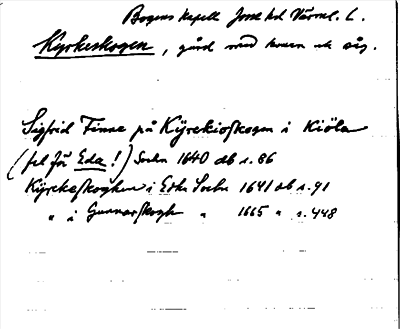 Bogens kapell Jösse hd Värml. L.
Kyrkeskogen, gård med kvarn och såg.
Sigfrid Finne på Kÿrekioskogen i Kiöla
(fel för Eda!) Sochn 1640 db s. 86
Kÿrckeskoghen i Eda Sochn 1641 db s. 91
" i Gunnarskogh " 1665 " s. 448